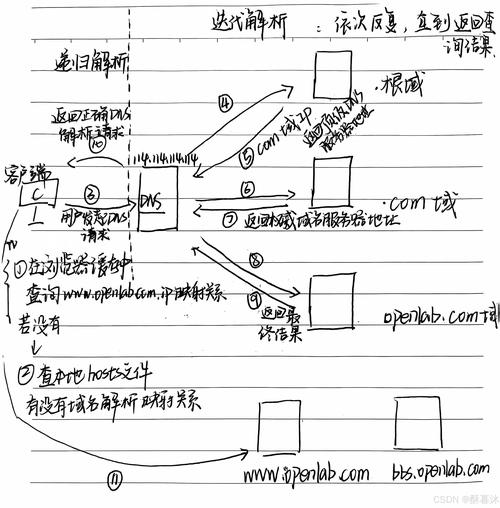 迭代解析 : 依次反复,直到返回查
询结果.
递归解析
返回正确DNS
解析请求
⑩
④
.根域
⑤ com域IP
返回顶级DNS
服务器地址
114.114.114.114
客户端
C
③
用户发起DNS
请求
DNS
⑥
⑦ 返回权威域名服务器地址
.com域
①在浏览器缓存中
查询www.openlab.com.ip映射关系
若没有
⑧
⑨
返回最
终结果
openlab.com域
②查本地hosts文件
有没有域名解析映射关系
⑪
www.openlab.com
bbs.openlab.com
CSDN @酥暮沐